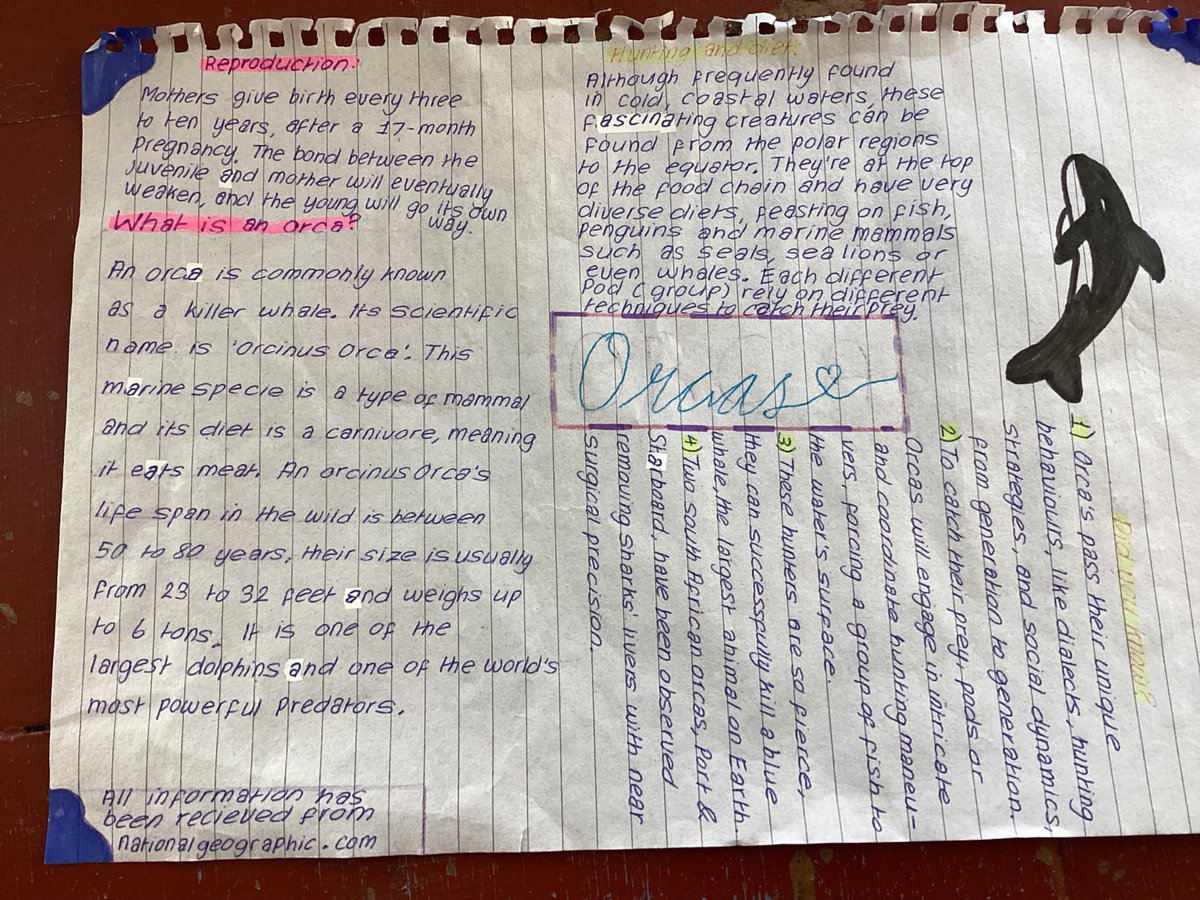 Reproduction:
Mothers give birth every three
to ten years, after a 17-month
pregnancy. The bond between the
juvenile and mother will eventually
weaken, and the young will go its own
way.
What is an orca?
An orca is commonly known
as a killer whale. Its scientific
name is 'Orcinus Orca'. This
marine specie is a type of mammal
and its diet is a carnivore, meaning
it eats meat. An orcinus Orca's
life span in the wild is between
50 to 80 years, their size is usually
from 23 to 32 feet and weighs up
to 6 tons. It is one of the
largest dolphins and one of the world's
most powerful predators.
All information has
been recieved from
nationalgeographic.com
Hunting and diet:
Although frequently found
in cold, coastal waters, these
fascinating creatures can be
found from the polar regions
to the equator. They're at the top
of the food chain and have very
diverse diets, feasting on fish,
penguins and marine mammals
such as seals, sea lions or
even whales. Each different
Pod (group) rely on different
techniques to catch their prey.
Orcas
Did you know?
1) Orca's pass their unique
behaviours, like dialects, hunting
strategies, and social dynamics,
from generation to generation.
2) To catch their prey, pods or
Orcas will engage in intricate
and coordinate hunting maneu-
vers, forcing a group of fish to
the water's surface.
3) These hunters are so fierce,
they can successfully kill a blue
whale, the largest animal on Earth.
4) Two south African orcas, Port &
Starboard, have been observed
removing sharks' livers with near
surgical precision.